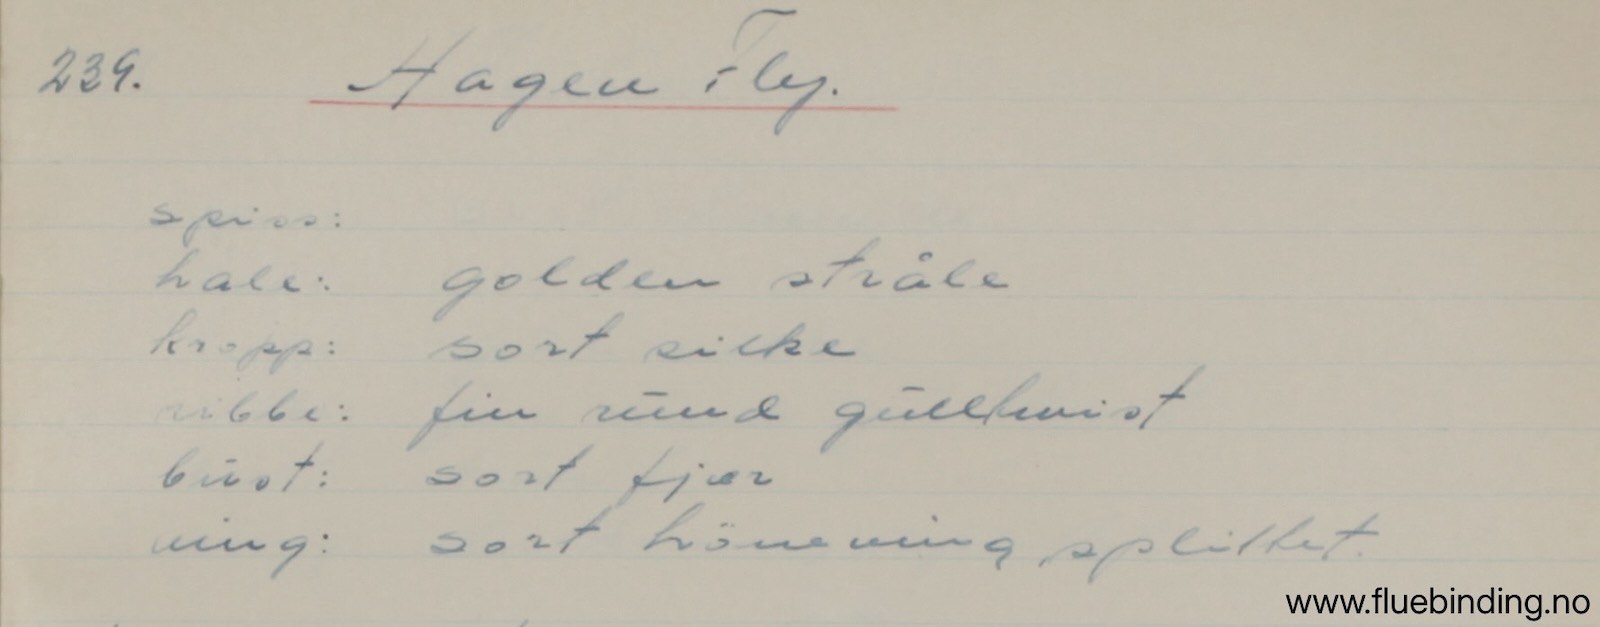 239. Hagen Fly.
spiss:
hale: golden stråle
kropp: sort silke
ribbe: fin rund gulltwist
bust: sort fjær
ving: sort höneving splittet.
www.fluebinding.no